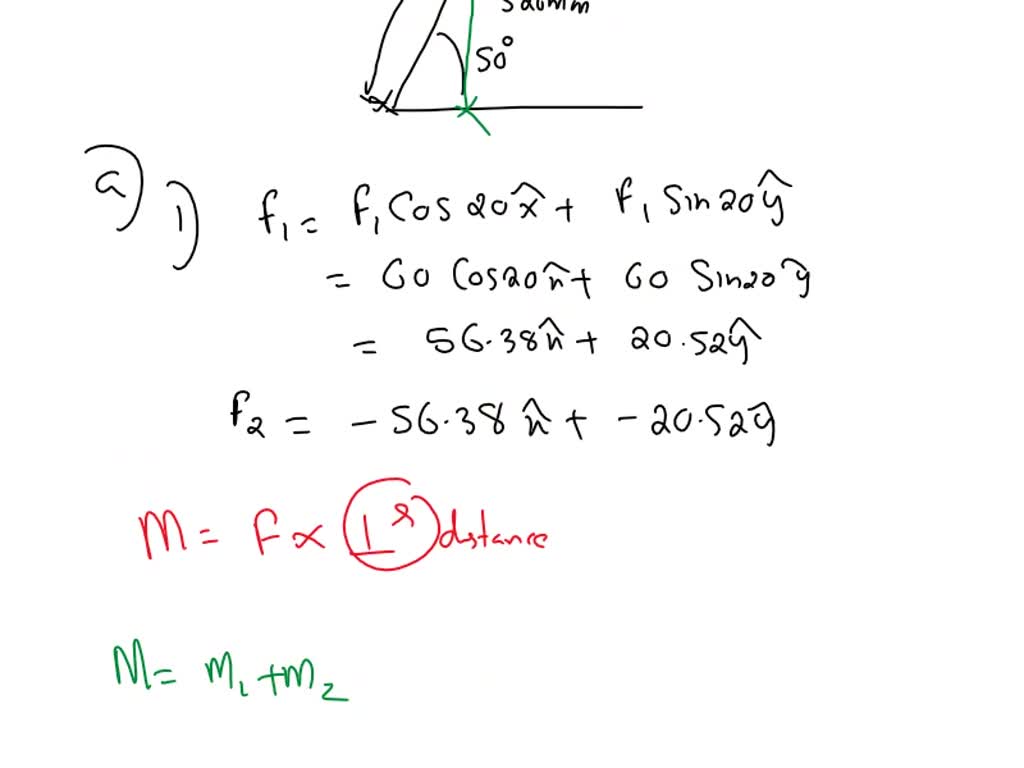 50°
a) 1) f₁ = f₁ Cos 20 x̂ + f₁ Sin 20 ŷ
= 60 Cos20 x̂ + 60 Sin20 ŷ
= 56.38 x̂ + 20.52 ŷ
f₂ = - 56.38 x̂ + - 20.52 ŷ
M = F × ⊥ʳ distance
M = m₁ + m₂